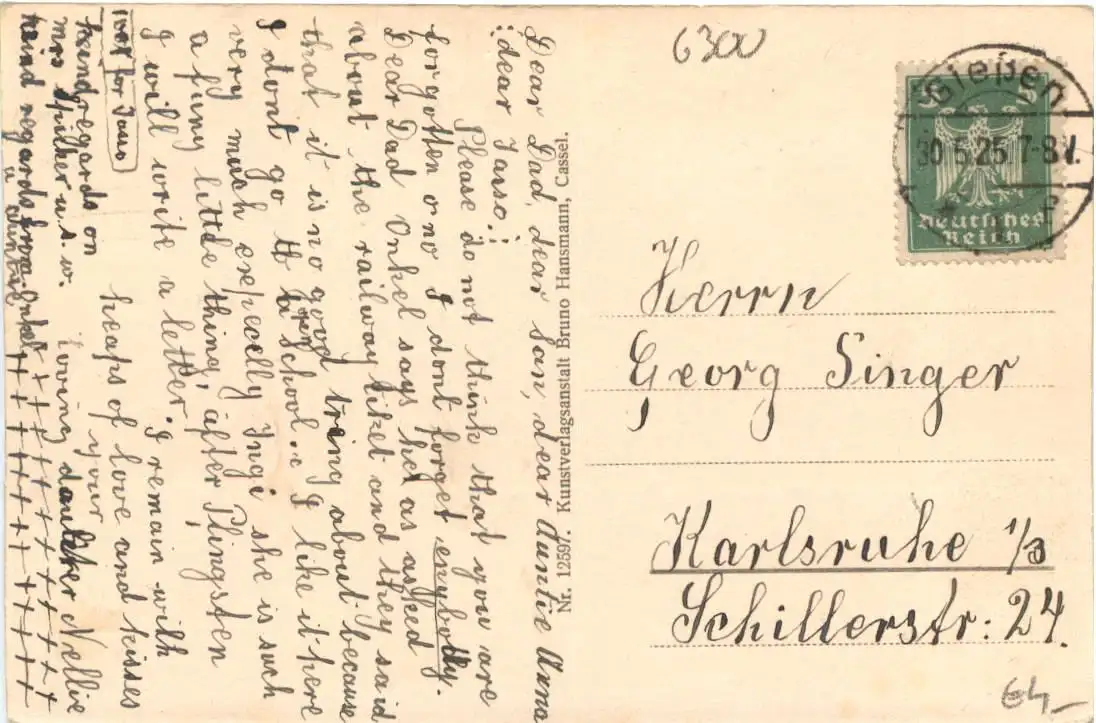 Dear Dad, dear San, dear Auntie Anna
dear Tasso!
Please do not think that you are
forgotten o no I dont forget enybody.
Dear Dad Onkel says het as asked
about the railway tiket and they said
that it is no good tring about because
I dont go to a School. I like it here
very much especelly Ingi she is such
a funy little thing, after Pfingsten
I will write a letter. I remain with
heaps of love and kisses
your
loving daugter Nellie
kend regards on
mrs u. s. w.
keind regards from Onkel
u auntie
++++++++++
++++++++++
Nr. 12597. Kunstverlagsanstalt Bruno Hansmann, Cassel.
6300
Gießen
30.5.25. 7-8 V.
Deutsches
Reich
Herrn
Georg Singer
Karlsruhe i/B
Schillerstr: 24.